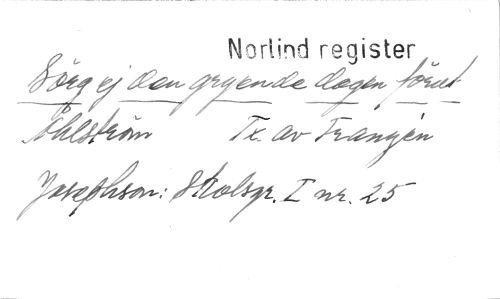 Norlind register
Sörg ej den gryende dagen förut
Åhlström Tx. av Franzén
Josephson: Skolsgr. I nr. 25